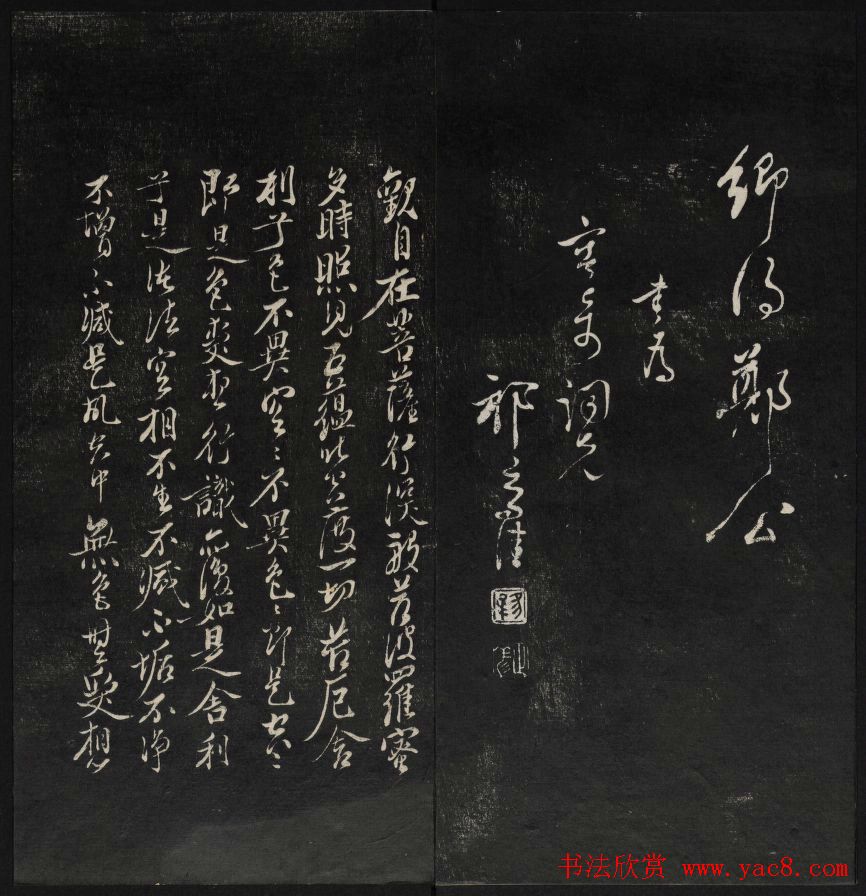 鄭公
書為
詞兄
祁豸佳
觀自在菩薩行深般若波羅蜜
多時照見五蘊皆空度一切苦厄舍
利子色不異空〻不異色〻即是空〻
即是色受想行識亦復如是舍利
子是諸法空相不生不滅不垢不淨
不增不減是故空中無色無受想
书法欣赏 www.yac8.com